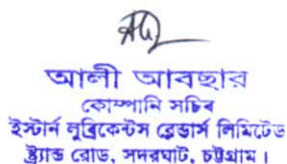 আলী আবছার
কোম্পানি সচিব
ইস্টার্ন লুব্রিকেন্টস ব্লেন্ডার্স লিমিটেড
ষ্ট্র্যান্ড রোড, সদরঘাট, চট্টগ্রাম।